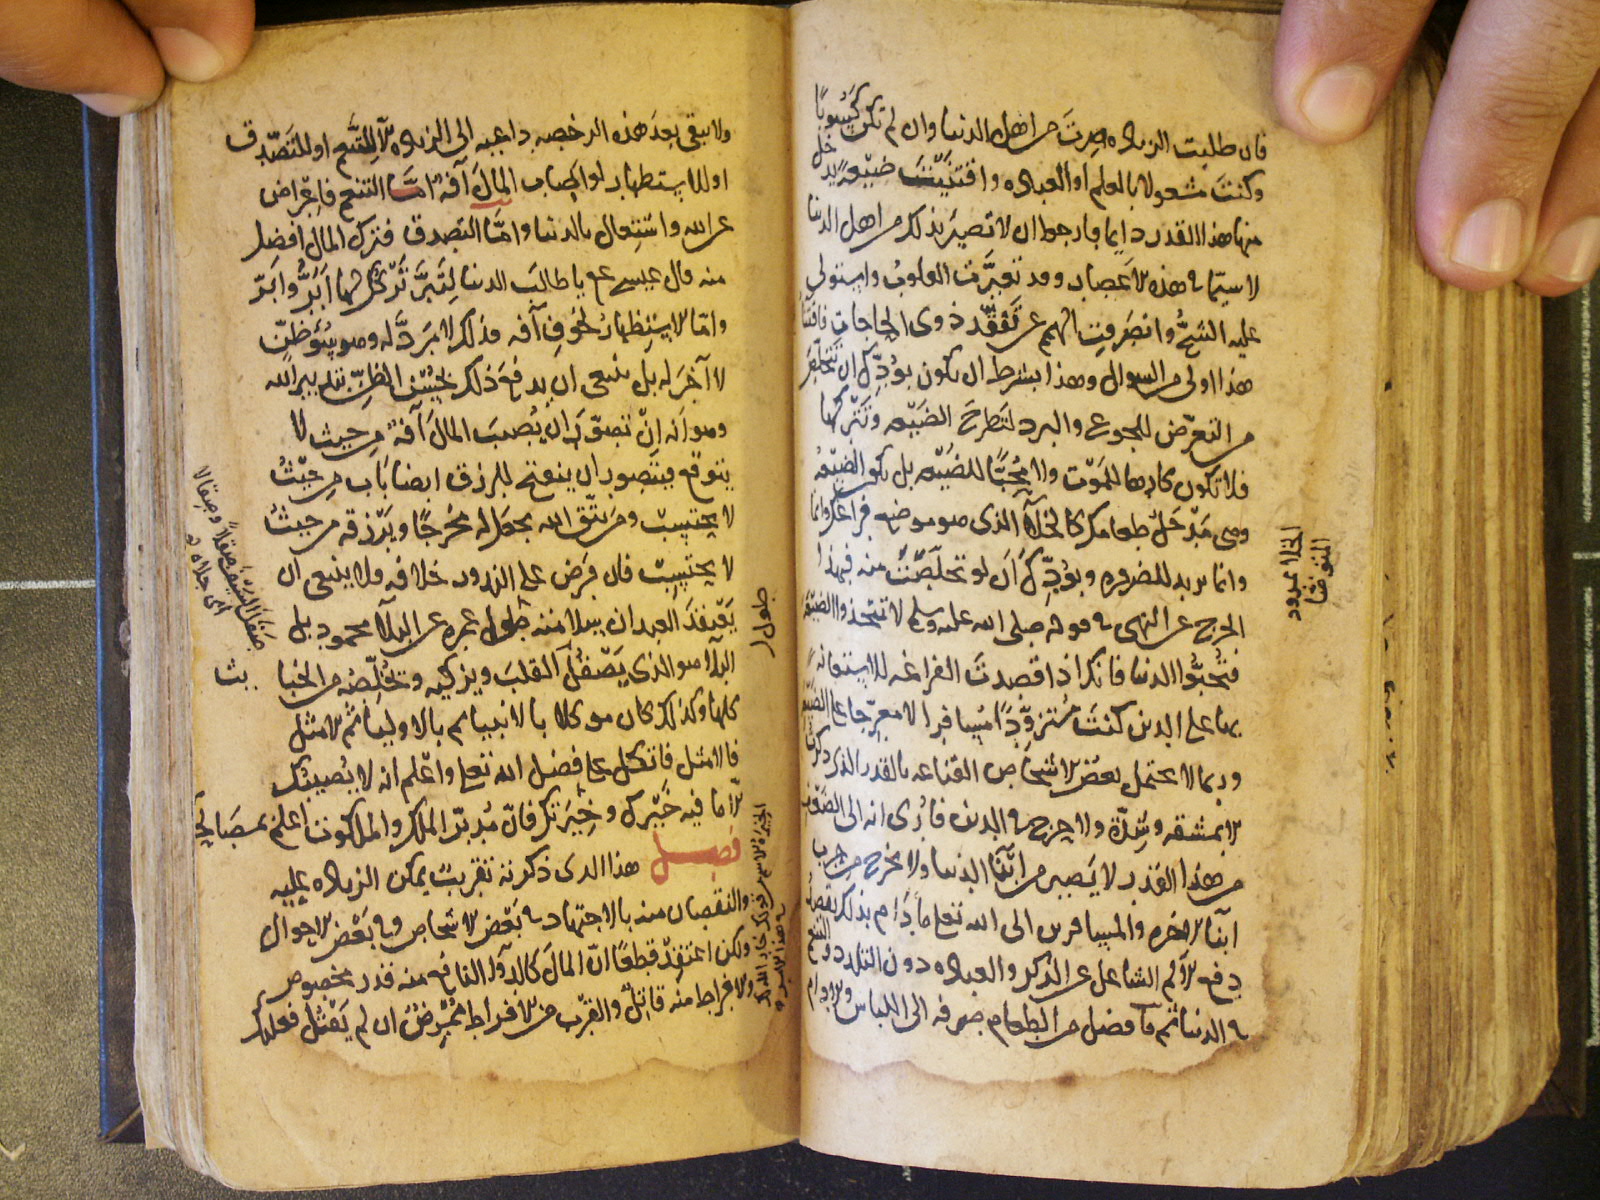 فان طلبت الزياده صرت من اهل الدنيا وان لم تكن كَسُوبًا
وكنتَ مشغولا بالعلم او العباده واقتنيْتَ ضيْعه يدخل
منها هذا القدر دايما فارجوا ان لا تصير بذلك من اهل الدنيا
لا سيّما فى هذه الاعصار وقد تغيَّرت القلوبُ واستولى
عليه الشحُّ وانصرفت الهمم عن تَفَقُّد ذوى الحاجات فاقتناء
هذا اولى من السوال وهذا بشرط ان تكون بودِّك ان تتخلّص
من التعرّض للجوع والبرد لتَطرحَ الضيْعه وتَتْركها
فلا تكون كارها للمَوْت ولا مُحِبًّا للضيْعه بل تكون الضيْعهُ
وهى مَدْخلُ طعامك كالخلآءِ الذى هو موضع فراغك وانما
وانما يريد للضروره وبودِّكَ اَن لو تخلَّصْتَ منه فبهذا
الخرج عن النهى فى قوله صلى الله عليه وسلم لا تتخذوا الضيْعه
فتُحبُّوا الدنيا فانك اذا قصدتَ الفراغه للاستعانه
بها على الدين كنتَ مُتزوِّدًا مُسافرا لا معرّجا على الضيْعه
وربما لا يحتمل بعضُ الاشخاص القناعه بالقدر الذى ذكرتُ
الا بمشقه وشِدّة ولا حرج فى الدين فارى انه الى الضعف
من هذا القدر لا يَصير من ابْنآء الدنيا ولا يخرج من حزب
ابنآء الاخره والمسافرين الى الله تعلى ما دَام بذلك يقصد
دفع الالم الشاغل عن الذكر والعباده دون التلدد والتنعّم
فى الدنيا ثم ما فضل من الطعام صرفه الى اللباس والادام
الخلا ممدود
المتوضّا
ولا يبقى بعدَ هذه الرخصه داعيه الى الزياده الا للتنَعُّم او للتَصَدق
او للاستظهار لو اصاب المالَ آفة امَّا التنعم فاعْراض
عن الله واشتغال بالدنيا وامَّا التصدق فترك المال افضل
منه قال عيسى عم يا طالبَ الدنيا لِتَبَرَّ تَرْكُكَ لها اَبَرُّ واَبَرّ
وامّا الاستظهارُ لخوفِ آفه فذلك لا مَرَدَّ له وهو سُوءُ ظنّ
لا آخرَ له بل ينبغى ان يدفعَ ذلك بحُسْن الظنّ بتدبير الله
وهو اَنه اِنْ تصوّر اَنْ يُصيبَ المالَ آفة من حيث لا
يتوقع فيتصور ان ينفتح للرزق ايضا بَاب من حيْثُ
لا يحتسِب ومن يتّق الله يجعل له مخرجًا ويَرْزقه من حيثُ
لا يحتسِب فان فرض على الندور خلافه فلا ينبغى ان
يَعْتقدَ العبد ان سلامته طول عمره عن البلآء محمود بل
البلآءُ هو الذى يَصْقُل القلبَ ويزكيه ويُخلِّصُه من الخبا يث
كلها وكذلك كان موكلا بالانبياء ثم بالاولياء ثم الامثل
فالامثل فاتكل على فضل الله تعلى واعْلم انه لا يُصيبُك
الّا ما فيه خَيْرك وخِيَرتك فانّ مُدبّرَ الملك والملكوت اعلم بمصَالحك
فصل هذا الذى ذكرته تقريبٌ يمكن الزياده عليه
والنقصان منه بالاجتهاد فى بَعْض الاشخاص وفى بَعْض الاحوال
ولكن اعتقدْ قطعًا انّ المالَ كالدوآء النافع منه قدر مخصوص
والافراط منه قاتلٌ والقرْب من الافراط مُمْرِضٌ ان لم يَقْتل فعليك
صَقَلَ السَيْفَ صَقْلاً وصِقالا
اى جلاه
طول